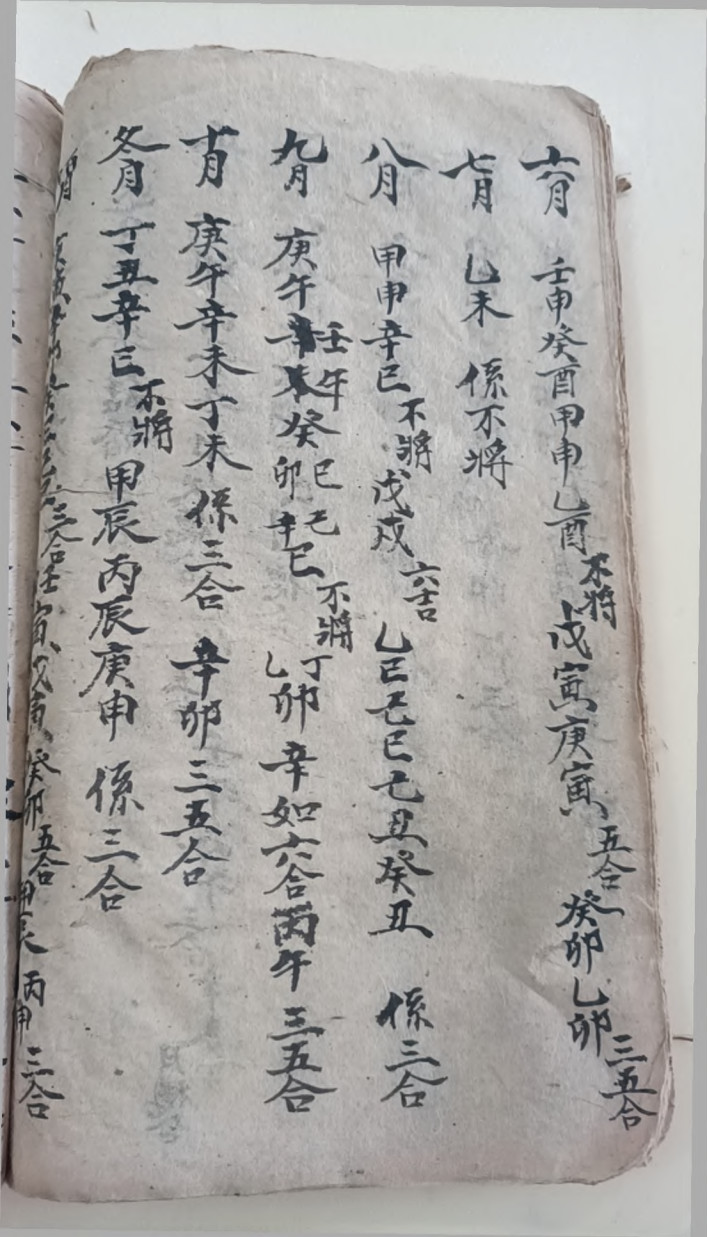 六月 壬申癸酉甲申乙酉不将 戊寅庚寅五合 癸卯乙卯三五合
七月 乙未 係不将
八月 甲申辛巳不将 戊戌六吉 乙巳己巳己丑癸丑 係三合
九月 庚午辛未壬午癸卯巳辛巳己不将 乙卯丁辛如六合丙午三五合
十月 庚午辛未丁未係三合 辛卯三五合
冬月 丁丑辛巳不将 甲辰丙辰庚申 係三合
三合壬寅戊寅癸卯五合甲辰丙申三合